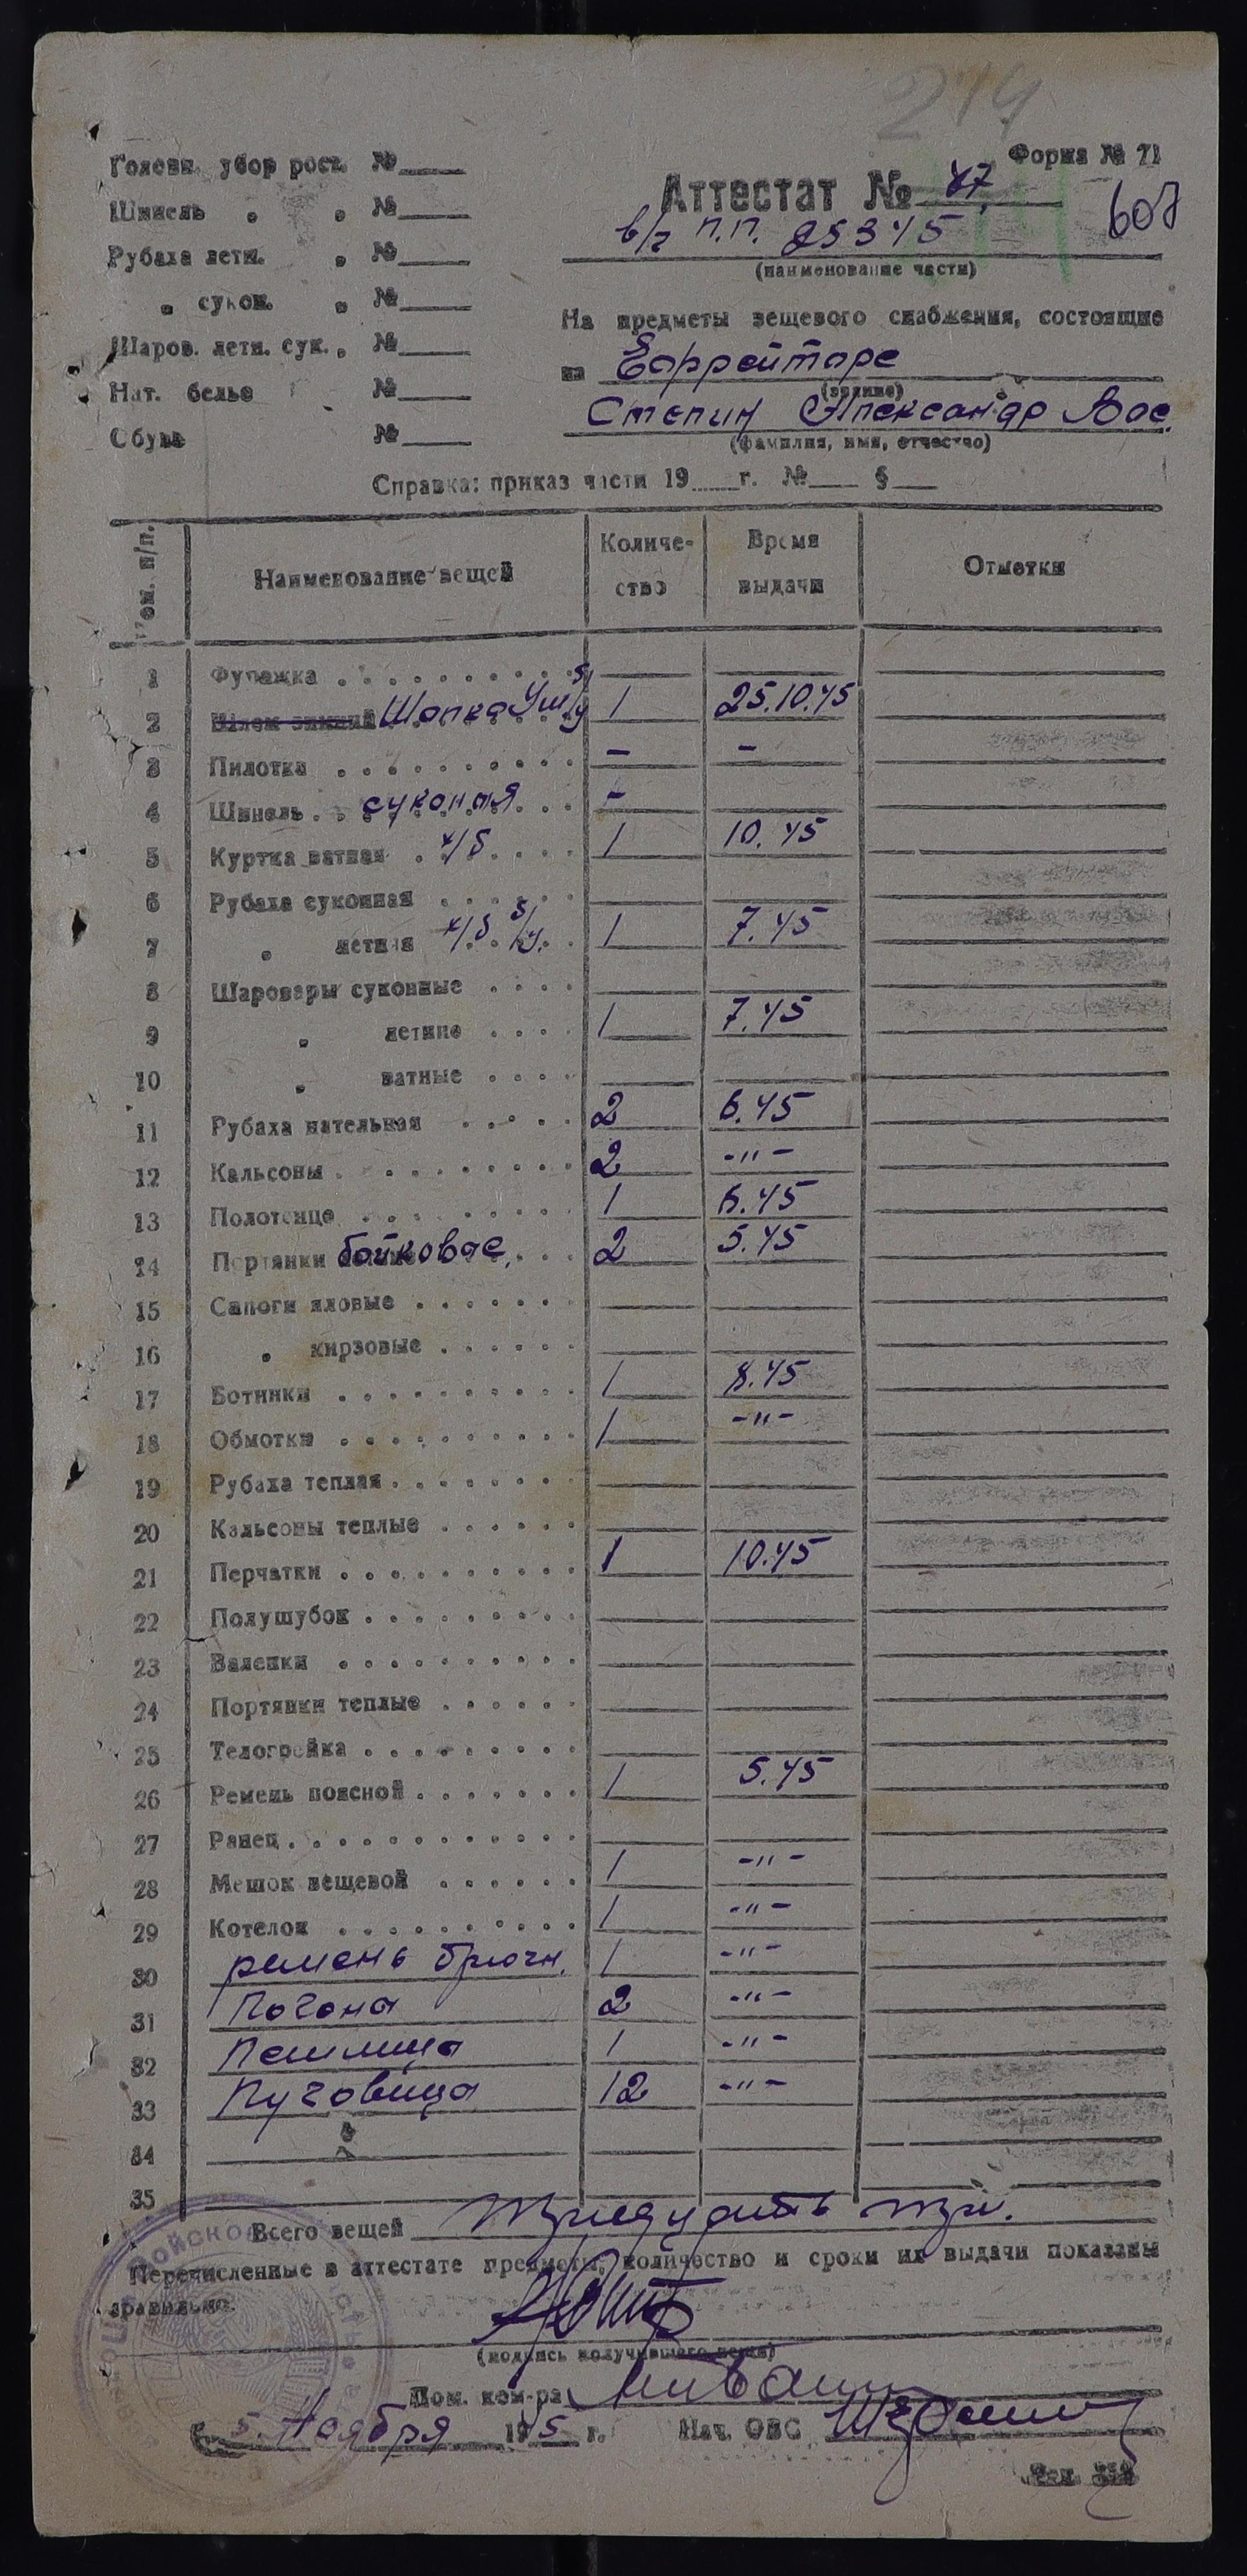 219
Форма № 71
Головн. убор рост. №
Аттестат № 47
607
Шинель " " №
в/г п.п. 25345
Рубаха летн. " №
(наименование части)
" сукон. " №
На предметы вещевого снабжения, состоящие
Шаров. летн. сук. " №
на Ефрейторе
(звание)
Нат. белье №
Степин Александр Вас.
Обувь №
(фамилия, имя, отчество)
Справка: приказ части 19 г. № §
Ном. п/п. Наименование вещей Количество Время выдачи Отметки
1 Фуражка
2 Шлем зимний Шапка Уш б/у 1 25.10.45
3 Пилотка - -
4 Шинель суконная -
5 Куртка ватная х/б 1 10.45
6 Рубаха суконная
7 " летняя х/б б/у. 1 7.45
8 Шаровары суконные
9 " летние 1 7.45
10 " ватные
11 Рубаха нательная 2 6.45
12 Кальсоны 2 -"-
13 Полотенце 1 6.45
14 Портянки байковое 2 5.45
15 Сапоги яловые
16 " кирзовые
17 Ботинки 1 8.45
18 Обмотки 1 -"-
19 Рубаха теплая
20 Кальсоны теплые
21 Перчатки 1 10.45
22 Полушубок
23 Валенки
24 Портянки теплые
25 Телогрейка
26 Ремень поясной 1 5.45
27 Ранец
28 Мешок вещевой 1 -"-
29 Котелок 1 -"-
30 ремень брючн. 1 -"-
31 Погона 2 -"-
32 Петлица 1 -"-
33 Пуговица 12 -"-
34
35
Всего вещей Тридцать три.
Перечисленные в аттестате предметы, количество и сроки их выдачи показаны
правильно.
(подпись получившего вещи)
Пом. ком-ра
5 Ноября 1945 г. Нач. ОВС